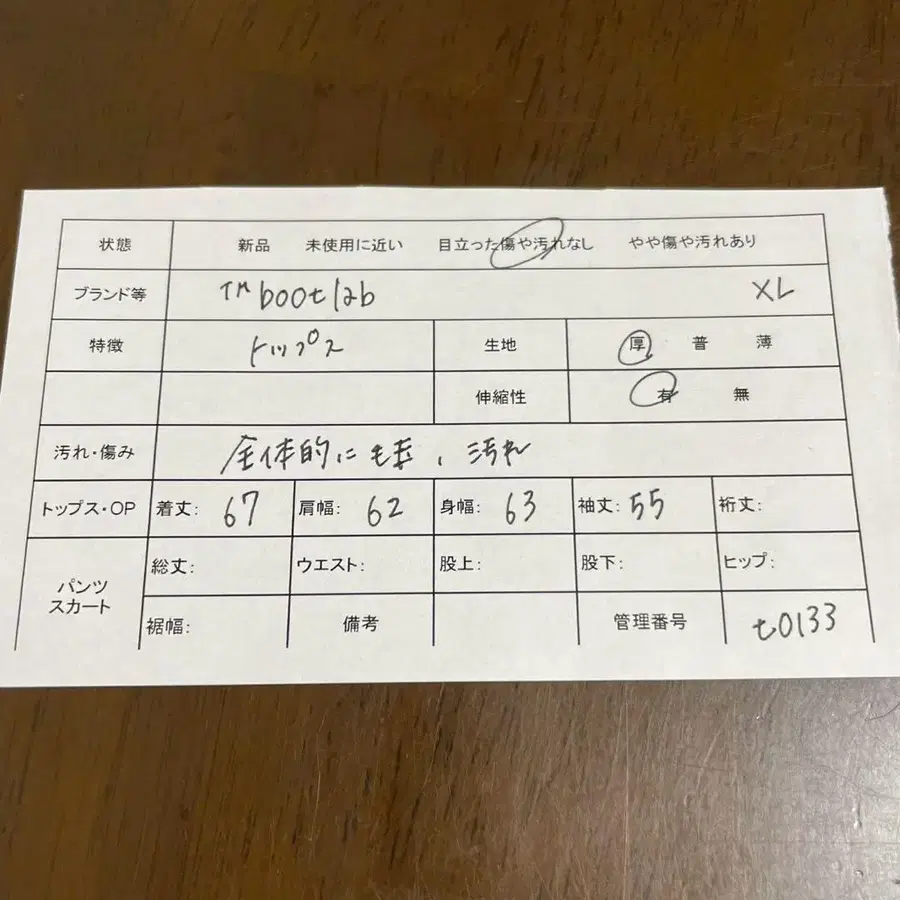 状態 新品 未使用に近い 目立った傷や汚れなし やや傷や汚れあり
ブランド等 TMbootlab XL
特徴 トップス 生地 厚 普 薄
伸縮性 有 無
汚れ・傷み 全体的に 、汚れ
トップス・OP 着丈: 67 肩幅: 62 身幅: 63 袖丈: 55 裄丈:
パンツ
スカート
総丈: ウエスト: 股上: 股下: ヒップ:
裾幅: 備考 管理番号 t0133